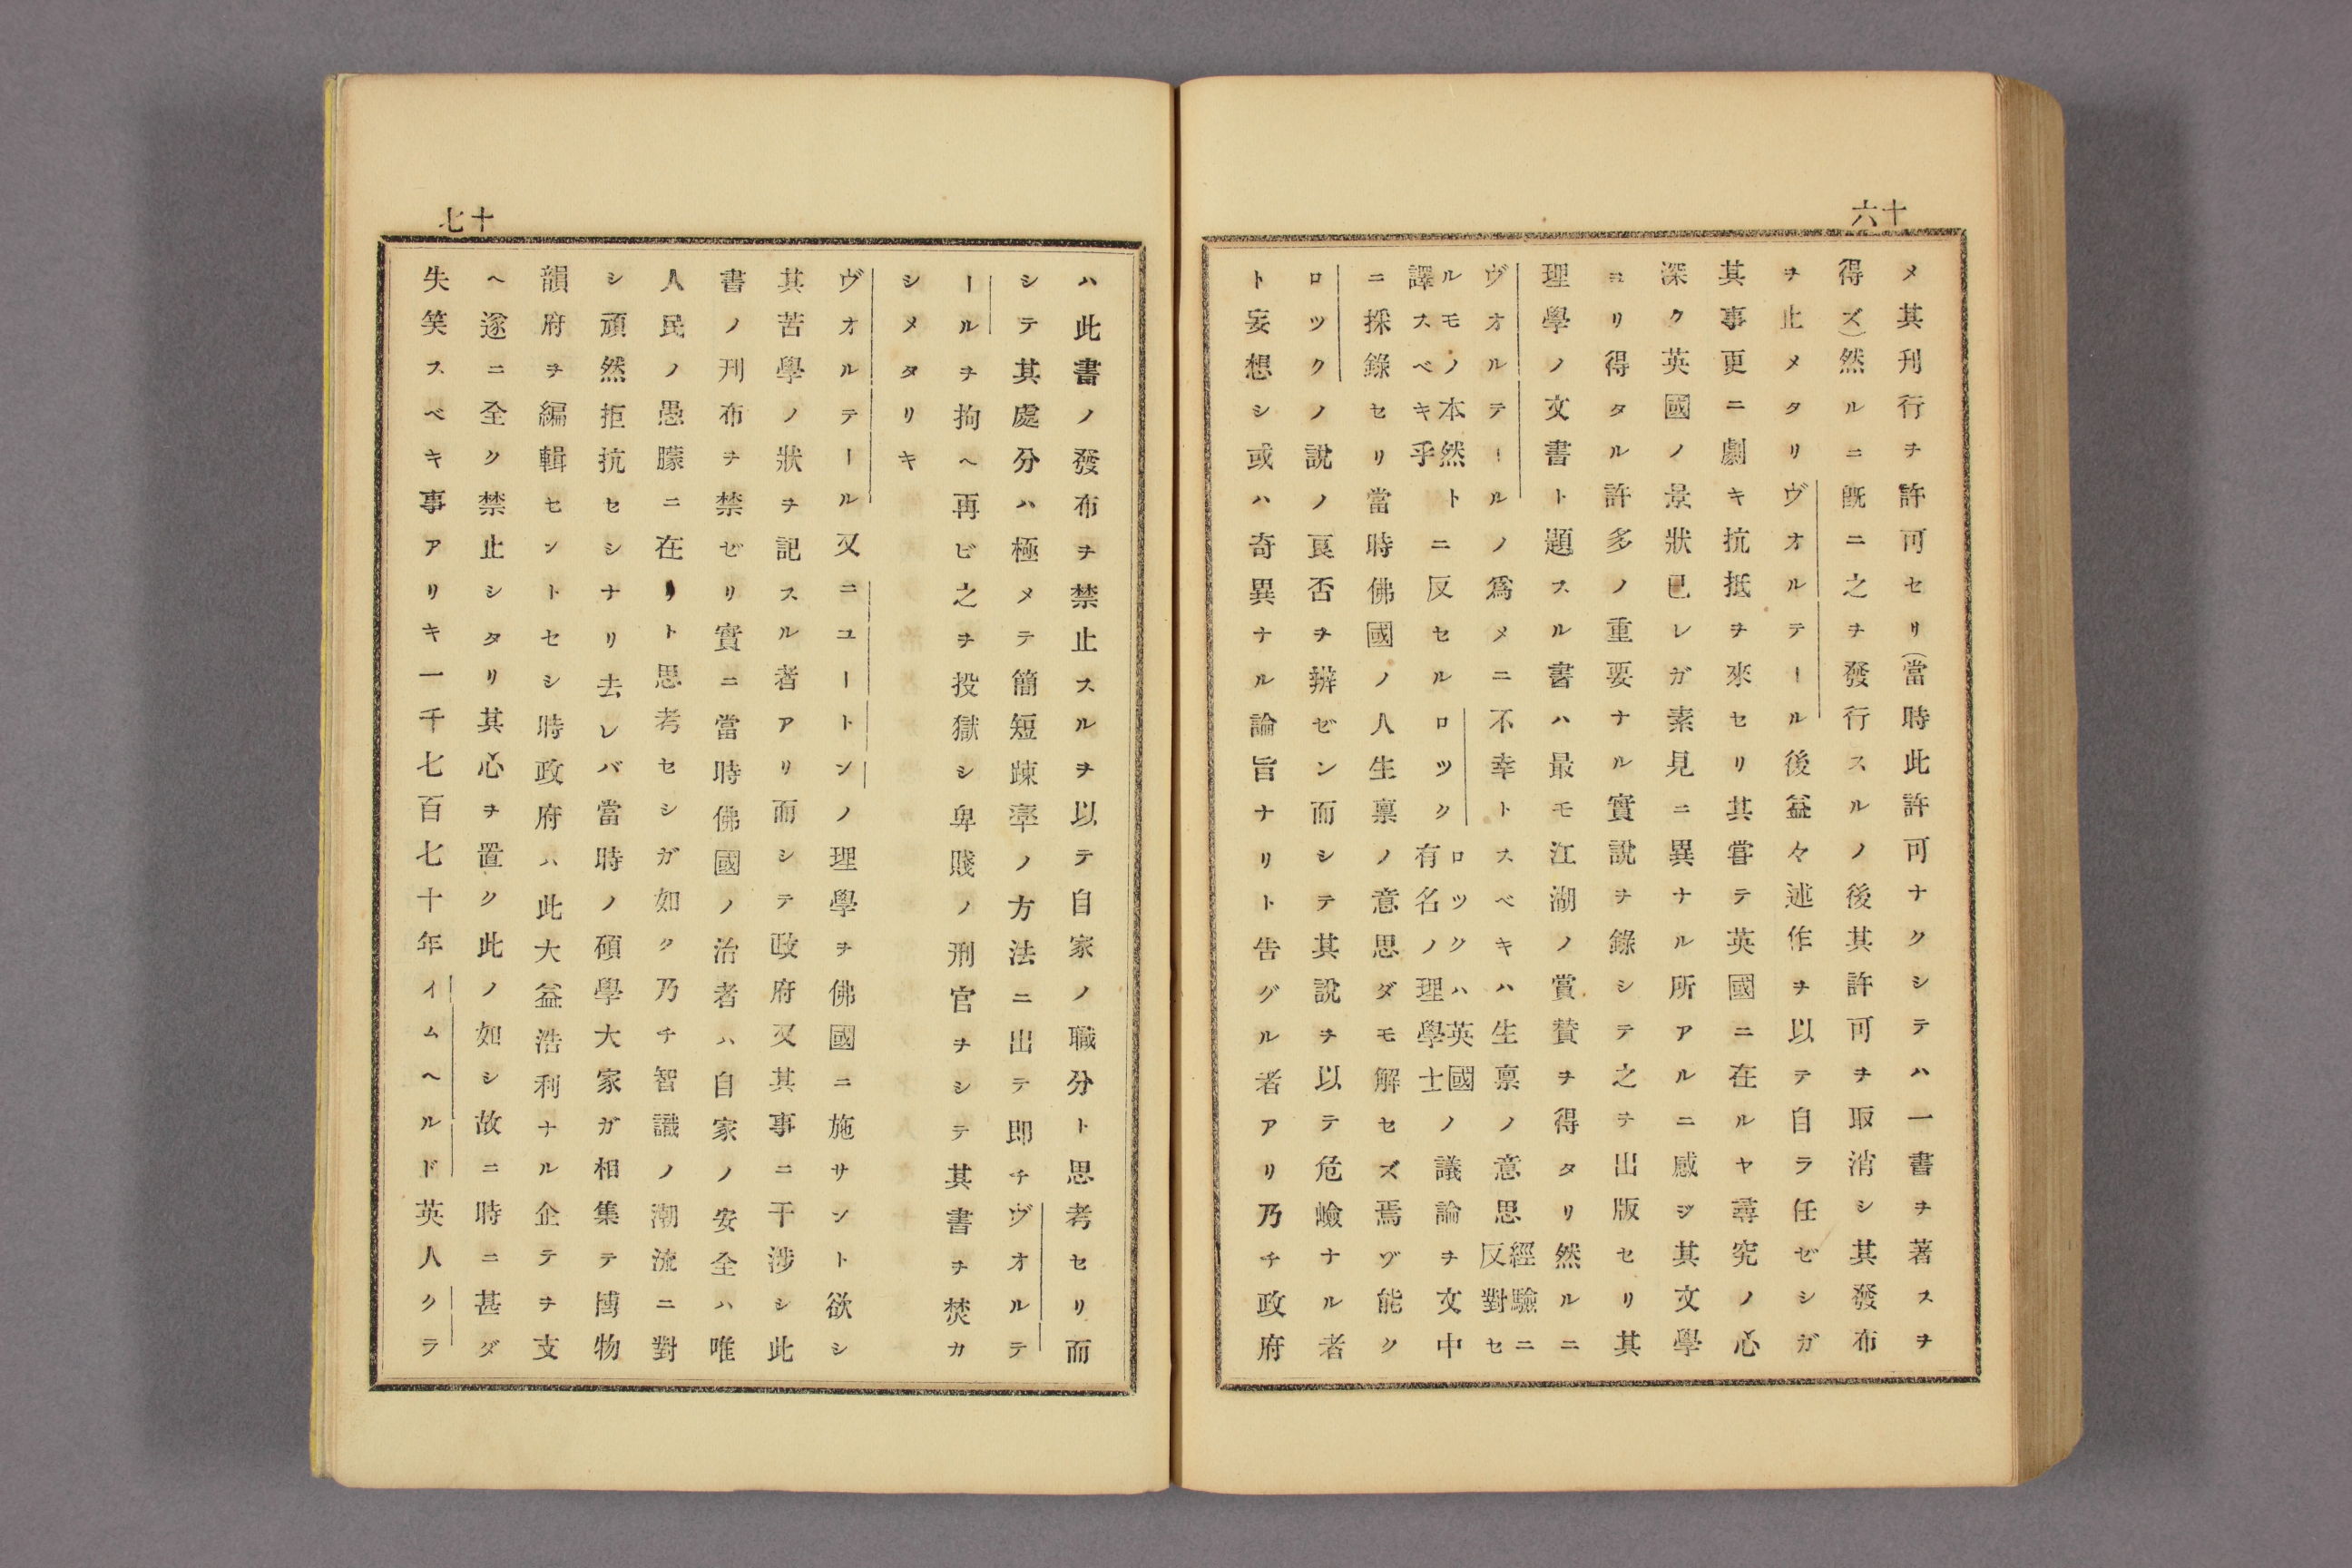 十六
メ其刊行ヲ許可セリ(當時此許可ナクシテハ一書ヲ著スヲ
得ズ)然ルニ既ニ之ヲ發行スルノ後其許可ヲ取消シ其發布
ヲ止メタリヴオルテール後益々述作ヲ以テ自ラ任ゼシガ
其事更ニ劇キ抗抵ヲ來セリ其甞テ英國ニ在ルヤ尋究ノ心
深ク英國ノ景狀已レガ素見ニ異ナル所アルニ感ジ其文學
ヨリ得タル許多ノ重要ナル實說ヲ錄シテ之ヲ出版セリ其
理學ノ文書ト題スル書ハ最モ江湖ノ賞賛ヲ得タリ然ルニ
ヴオルテールノ爲メニ不幸トスベキハ生禀ノ意思經驗ニ反對セ
ルモノ本然ト譯スベキ乎ニ反セルロツクロツクハ英國有名ノ理學士ノ議論ヲ文中
ニ採錄セリ當時佛國ノ人生禀ノ意思ダモ解セズ焉ヅ能ク
ロツクノ說ノ良否ヲ辨ゼン而シテ其說ヲ以テ危嶮ナル者
ト妄想シ或ハ奇異ナル論旨ナリト告グル者アリ乃チ政府
十七
ハ此書ノ發布ヲ禁止スルヲ以テ自家ノ職分ト思考セリ而
シテ其處分ハ極メテ簡短踈率ノ方法ニ出テ即チヴオルテ
ールヲ拘ヘ再ビ之ヲ投獄シ卑賤ノ刑官ヲシテ其書ヲ焚カ
シメタリキ
ヴオルテール又ニユートンノ理學ヲ佛國ニ施サント欲シ
其苦學ノ狀ヲ記スル者アリ而シテ政府又其事ニ干涉シ此
書ノ刊布ヲ禁ゼリ實ニ當時佛國ノ治者ハ自家ノ安全ハ唯
人民ノ愚朦ニ在リト思考セシガ如ク乃チ智識ノ潮流ニ對
シ頑然拒抗セシナリ去レバ當時ノ碩學大家ガ相集テ博物
韻府ヲ編輯セントセシ時政府ハ此大益浩利ナル企テヲ支
ヘ遂ニ全ク禁止シタリ其心ヲ置ク此ノ如シ故ニ時ニ甚ダ
失笑スベキ事アリキ一千七百七十年イムヘルド英人クラ